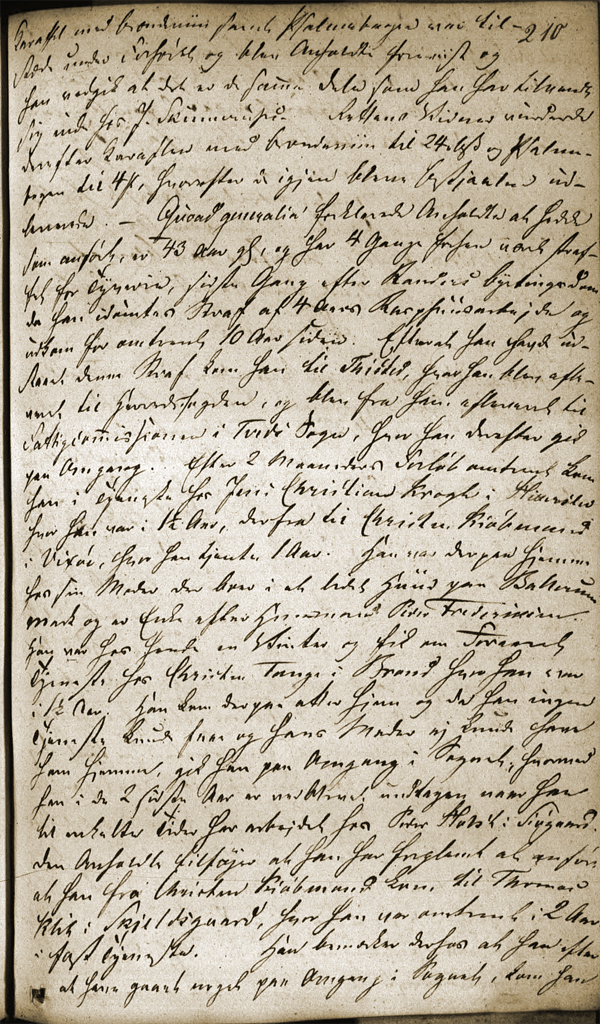 Karaflen med brændeviin samt Psalmebogen var til- 210
stæde under Forhøret og blev Anholdte foreviist og
han vedgik at det er de samme dele som han har tilvendt
sig inde hos J. Rettens Vidner vurderede
derefter Karaflen med brændeviin til 24 og Psalme-
bogen til 4 hvorefter de igjen bleve bestjaalne ud-
leverede. — Quoad generalia forklarede Anholdte at hedde
som anført, er 43 Aar gl, og har 4 Gange forhen været straf-
fet for Tyverie, sidste Gang efter Randers byetingsdom
da han idømtes Straf af 4 Aars Rasphuusarbejde og
udkom for omtrent 10 Aar siden. Efterat han havde ud-
staaet denne Straf kom han til Thisted, hvor han blev afle-
veret til Herredsfogden, og blev fra ham afleveret til
Fattigcommissionen i Sogn, hvor han derefter gik
paa Omgang. Efter 2 Maaneders Forløb omtrent kom
han i Tjeneste hos Jens Christian Krogh i
hvor han var i 1½ Aar, derfra til Christen Kiøbmand
i Vixøe, hvor han tjente 1 Aar. Han var derpaa hjemme
hos sin Moder der boer i et lidet Huus paa
mark og er Enke efter Huusmand Peder Frederiksen.
Han var hos hende en Vinter og fik om Foraaret
Tjeneste hos Christen Tange i Brund hvor han var
i 1½ Aar. Han kom derpaa atter hjem og da han ingen
Tjeneste kunde faae og hans Moder ej kunde have
ham hjemme, gik han paa Omgang i Sognet, hvormed
han i de 2 sidste Aar er vedblevet undtagen naar han
til enkelte Tider har arbejdet hos Peder Holst i
Den Anholdte tilføjer at han har forglemt at anføre
at han fra Christen Kiøbmand kom til Thomas
Klit i Skjeldsgaard, hvor han var omtrent i 2 Aar
i fast Tjeneste. Han bemærker derhos at han efter
at have gaaet noget paa Omgang i Sognet, kom han